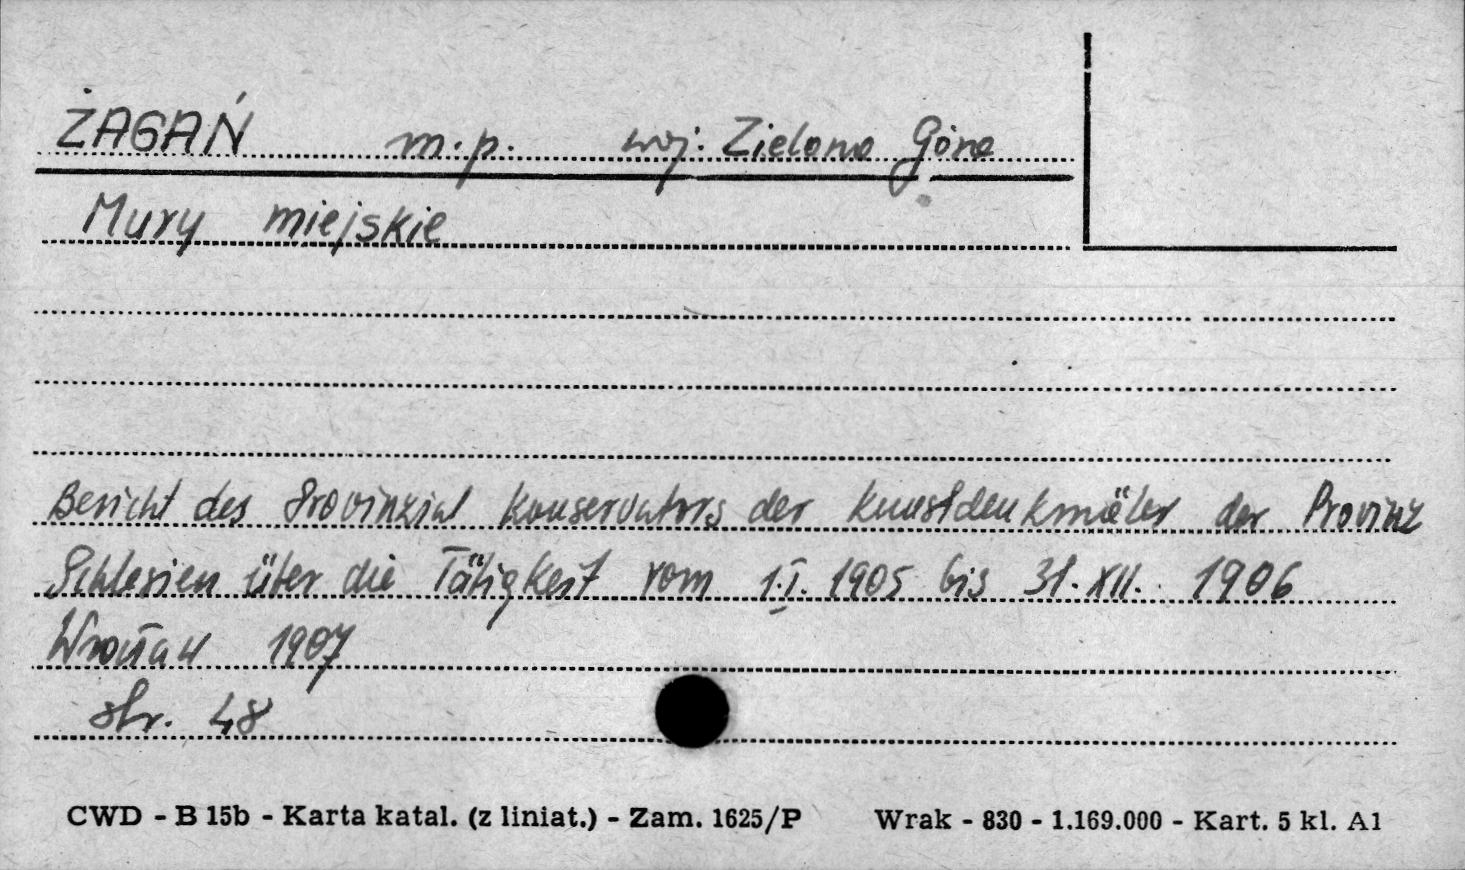 ŻAGAŃ m.p. woj. Zielona Góra
Mury miejskie
Bericht des Provinzial Konservators der Kunstdenkmäler der Provinz
Schlesien über die Tätigkeit vom 1.I. 1905 bis 31.XII. 1906
Wrocław 1907
str. 48
CWD - B 15b - Karta katal. (z liniat.) - Zam. 1625/P Wrak - 830 - 1.169.000 - Kart. 5 kl. A1